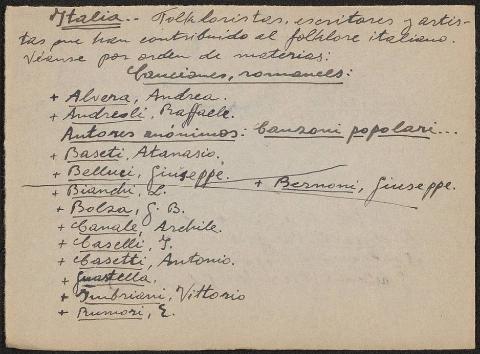 Italia.. Folkloristas, escritores y artis-
tas que han contribuido al folklore italiano.
Véanse por orden de materias:
Canciones, romances:
+ Alvera, Andrea.
+ Andreoli, Raffaele.
Autores anónimos: Canzoni popolari...
+ Baseti, Atanasio.
+ Belluci, Giuseppe.
+ Bernoni, Giuseppe.
+ Bianchi, L.
+ Bolza, G. B.
+ Canale, Archile.
+ Caselli, J.
+ Casetti, Antonio.
+ Guastella,
+ Imbriani, Vittorio
+ Rumori, E.